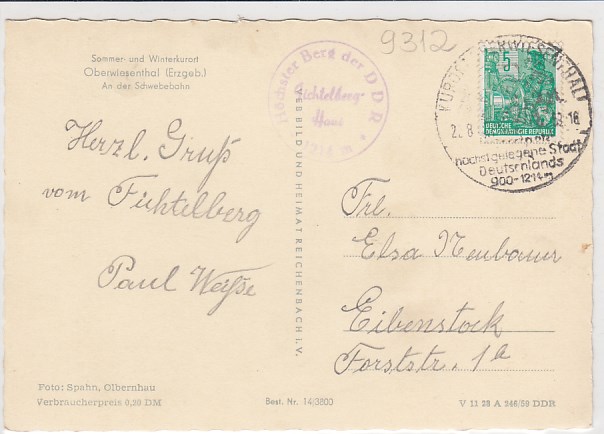 Sommer- und Winterkurort
Oberwiesenthal (Erzgeb.)
An der Schwebebahn
Höchster Berg der DDR
Fichtelberg-
Haus
1214 m
9312
KURORT OBERWIESENTHAL
5
DEUTSCHE
DEMOKRATISCHE REPUBLIK
2.8
-18
höchstgelegene Stadt
Deutschlands
900-1214m
Herzl. Gruß
vom Fichtelberg
Paul
VEB BILD UND HEIMAT REICHENBACH I. V.
Frl.
Elsa Neubauer
Eibenstock
Forststr. 1a
Foto: Spahn, Olbernhau
Verbraucherpreis 0,20 DM
Best. Nr. 14/3800
V 11 28 A 246/59 DDR